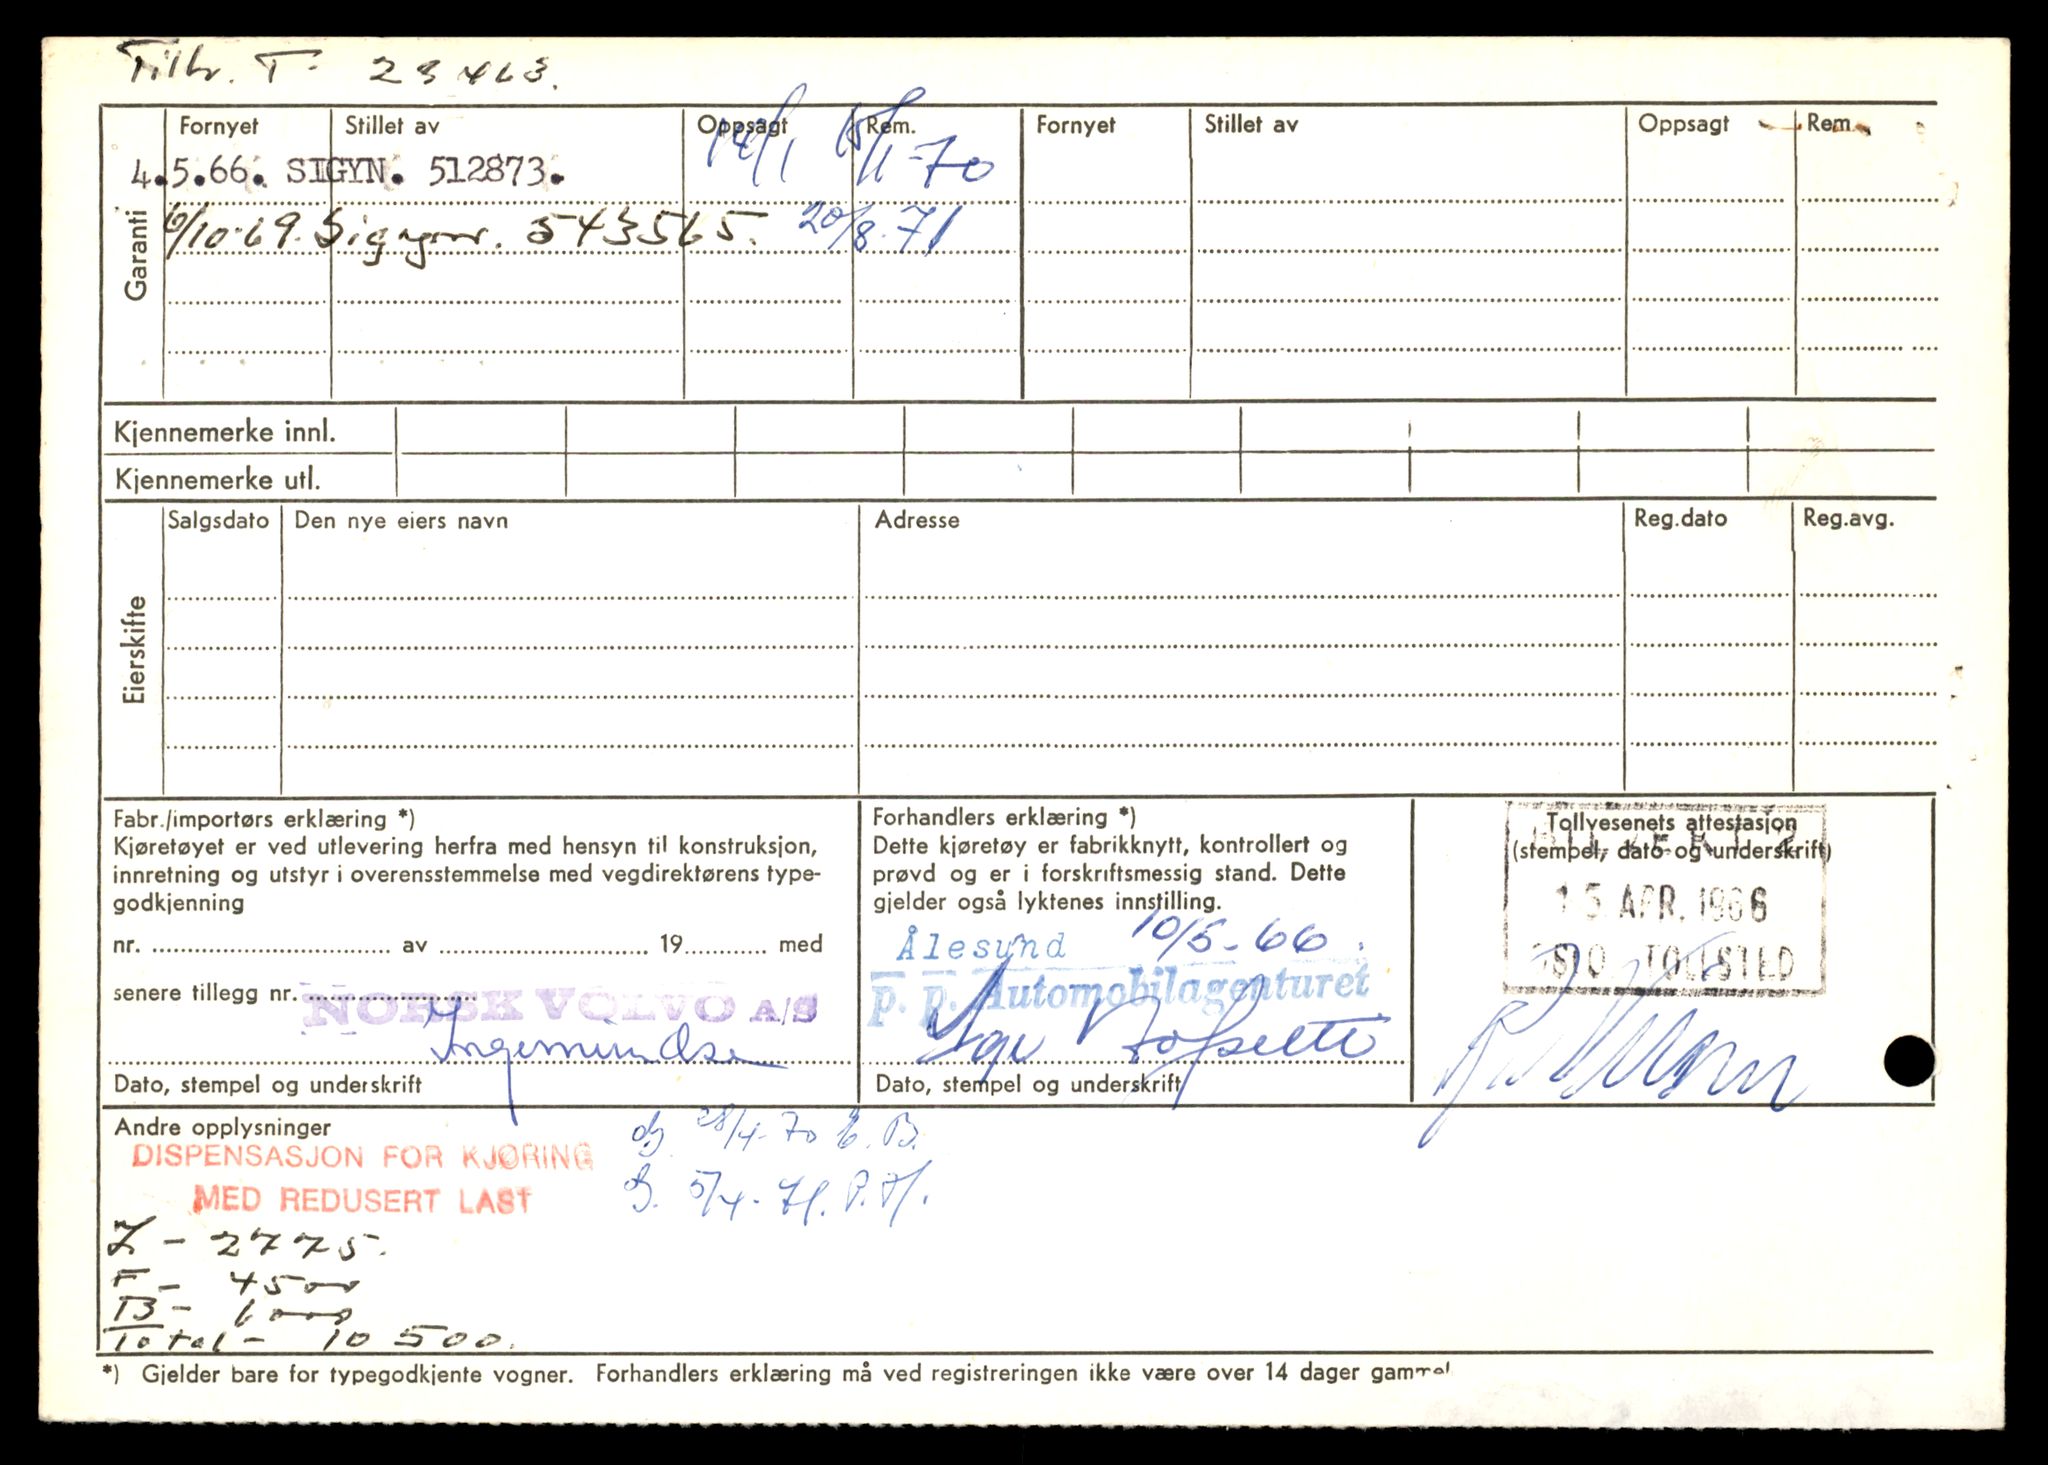 Tilh. T- 23463.
Fornyet Stillet av Oppsagt Rem. Fornyet Stillet av Oppsagt Rem.
4.5.66. SIGYN. 512873. 14/1 15/1-70
6/10-69. Sigyn nr. 543565. 20/8-71
Garanti
Kjennemerke innl.
Kjennemerke utl.
Salgsdato Den nye eiers navn Adresse Reg.dato Reg.avg.
Eierskifte
Fabr./importørs erklæring *)
Kjøretøyet er ved utlevering herfra med hensyn til konstruksjon,
innretning og utstyr i overensstemmelse med vegdirektørens type-
godkjenning
nr. av 19 med
senere tillegg nr.
NORSK VOLVO A/S
Ingemundsen
Dato, stempel og underskrift
Forhandlers erklæring *)
Dette kjøretøy er fabrikknytt, kontrollert og
prøvd og er i forskriftsmessig stand. Dette
gjelder også lyktenes innstilling.
Ålesund 10/5-66.
p. p. Automobilagenturet
Dato, stempel og underskrift
Tollvesenets attestasjon
(stempel, dato og underskrift)
15 APR. 1966
OSLO TOLLSTED
Andre opplysninger
DISPENSASJON FOR KJØRING
MED REDUSERT LAST
28/4-70 E.B.
5/4-71.
2775.
F - 4500
B - 6000
Total - 10 500.
*) Gjelder bare for typegodkjente vogner. Forhandlers erklæring må ved registreringen ikke være over 14 dager gammel